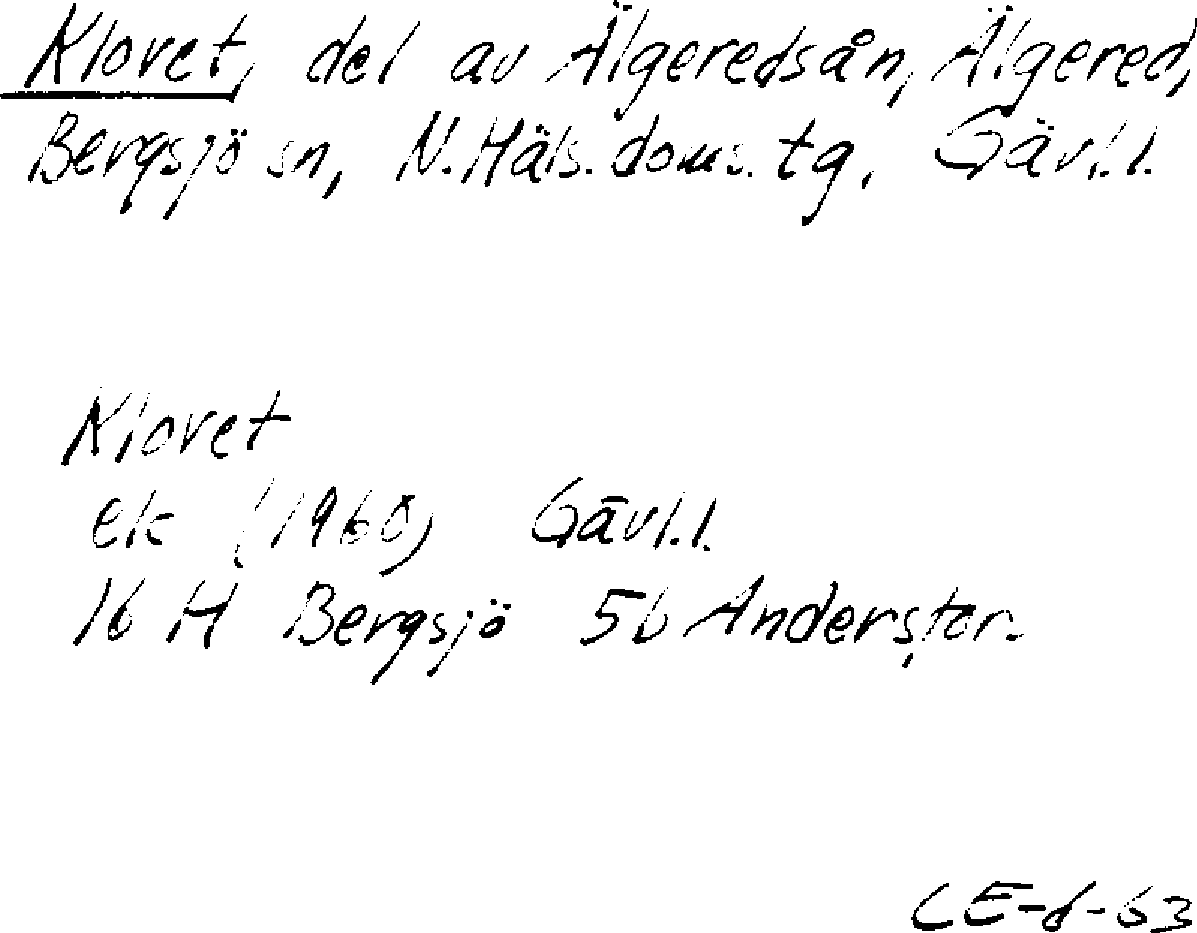 Klovet, del av Älgeredsån, Älgered,
Bergsjö sn, N. Häls. doms. tg. Gävl.l.
Klovet
ek (1960) Gävl.l.
16 H Bergsjö 5b Anderstor.